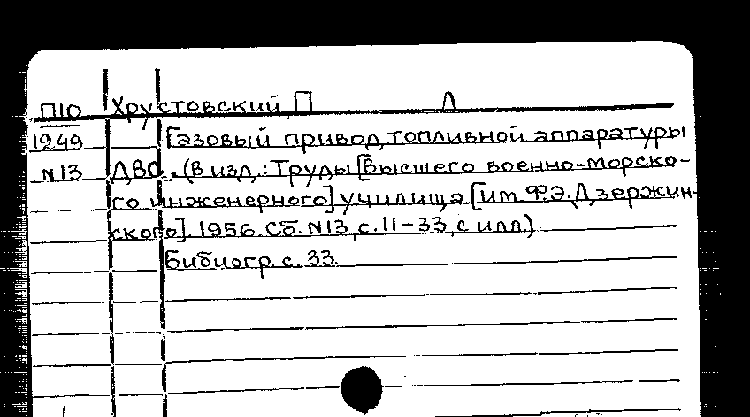 П10 Хрустовский, П Л
1249 Газовый привод топливной аппаратуры
N13 ДВС. (В изд.: Труды [Высшего военно-морско-
го инженерного] училища [им. Ф.Э. Дзержин-
ского]. 1956. Сб. N13, с. 11-33, с илл.)
Бибиогр. с. 33.